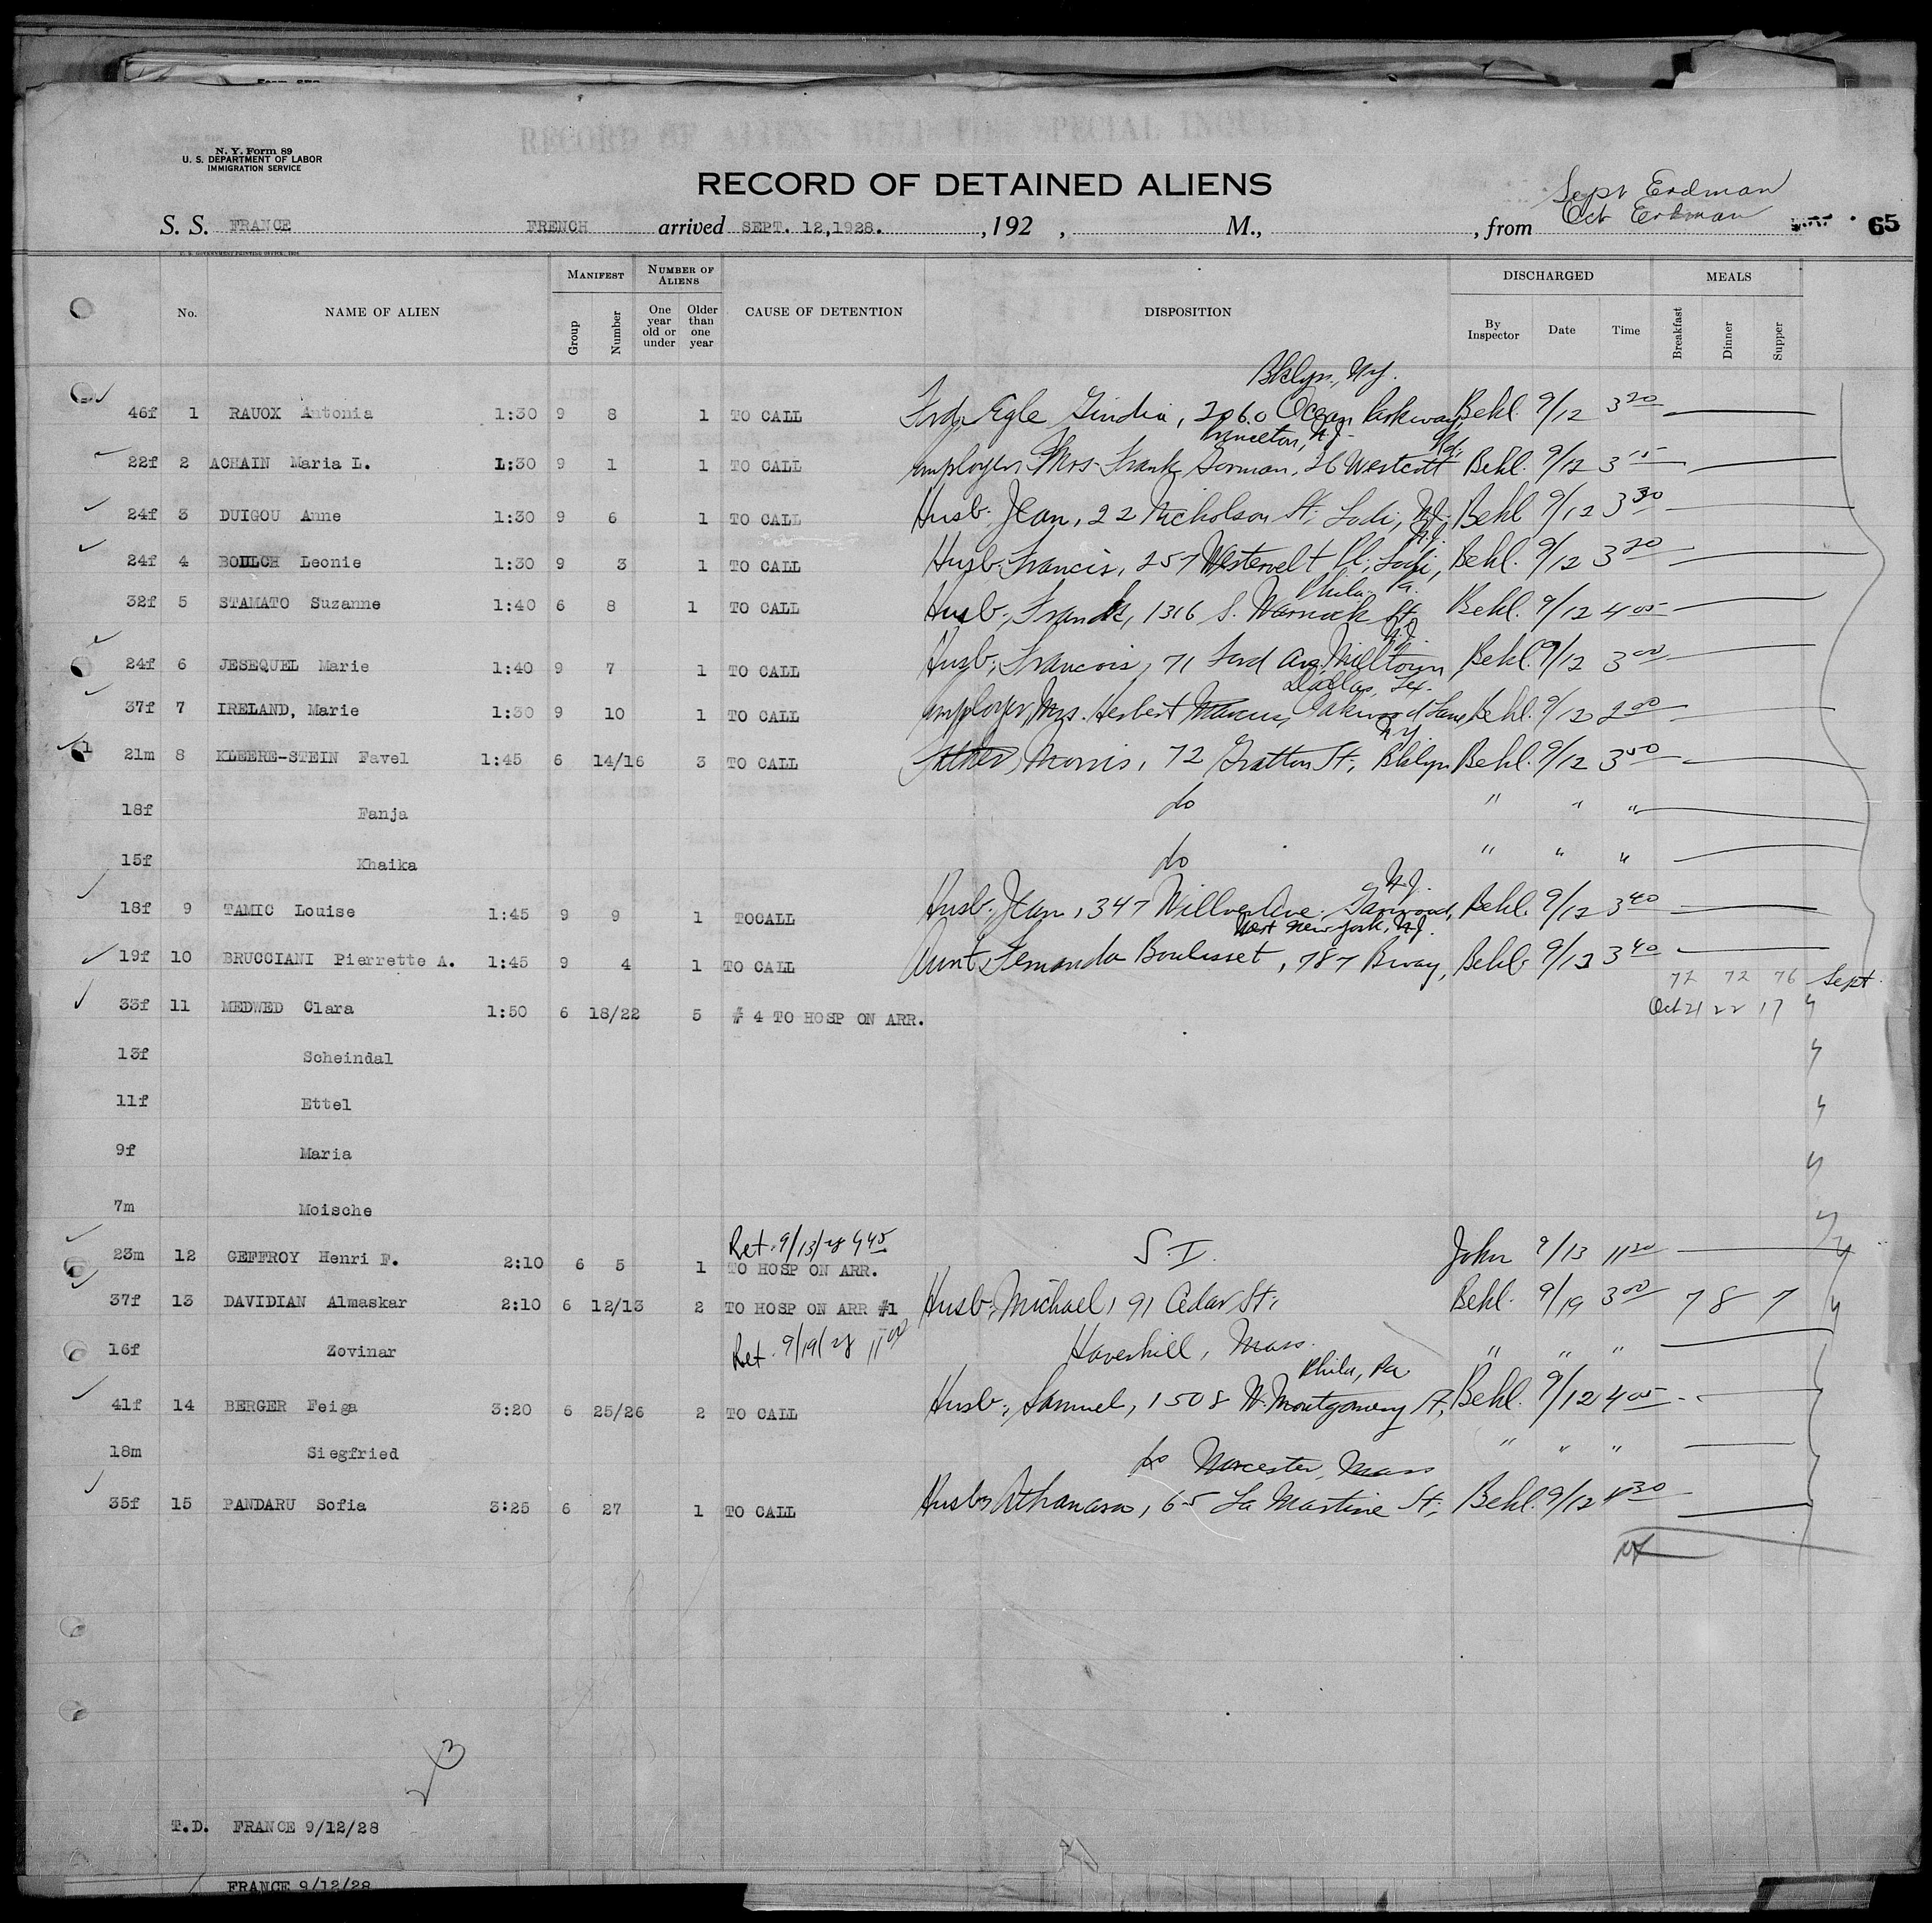 N. Y. Form 89
U. S. DEPARTMENT OF LABOR
IMMIGRATION SERVICE
RECORD OF ALIENS HELD FOR SPECIAL INQUIRY
RECORD OF DETAINED ALIENS
Sept Erdman
Oct Erdman
S. S. FRANCE FRENCH arrived SEPT. 12,1928. , 192 , M., , from 65
MANIFEST NUMBER OF ALIENS DISCHARGED MEALS
No. NAME OF ALIEN Group Number One year old or under Older than one year CAUSE OF DETENTION DISPOSITION By Inspector Date Time Breakfast Dinner Supper
Bklyn, N.Y.
46f 1 RAUOX Antonia 1:30 9 8 1 TO CALL Egle Gindia, 2060 Ocean Parkway, Behl. 9/12 3 20
Princeton, N.J. Rd,
22f 2 ACHAIN Maria L. 1:30 9 1 1 TO CALL employer, Mrs. Frank Gorman, 26 Westcott Behl. 9/12 3 15
24f 3 DUIGOU Anne 1:30 9 6 1 TO CALL Husb. Jean, 22 Nicholson St, Lodi, N.J. Behl 9/12 3 30
N.J.
24f 4 BODLCH Leonie 1:30 9 3 1 TO CALL Husb. Francis, 257 Westervelt Pl, Lodi, Behl. 9/12 3 20
Phila. Pa.
32f 5 STAMATO Suzanne 1:40 6 8 1 TO CALL Husb, Frank, 1316 S. Warnock St Behl. 9/12 4 05
N.J.
24f 6 JESEQUEL Marie 1:40 9 7 1 TO CALL Husb, Francois, 71 Ford Ave. Milltown Behl. 9/12 3 00
Dallas, Tex.
37f 7 IRELAND, Marie 1:30 9 10 1 TO CALL employer, Mrs. Herbert Marcus, Oakwood Lane, Behl. 9/12 2 00
N.Y.
21m 8 KLEERE-STEIN Favel 1:45 6 14/16 3 TO CALL Father, Morris, 72 Gratton St, Bklyn Behl. 9/12 3 00
18f Fanja do " " "
15f Khaika do " " "
N.J.
18f 9 TAMIC Louise 1:45 9 9 1 TOCALL Husb. Jean, 347 Ave. Garwood, Behl. 9/12 3 40
West New York, N.J.
19f 10 BRUCCIANI Pierrette A. 1:45 9 4 1 TO CALL Aunt, Boulisset, 787 Bway, Behl. 9/12 3 40
72 72 76 Sept.
33f 11 MEDWED Clara 1:50 6 18/22 5 # 4 TO HOSP ON ARR. Oct 21 22 17
13f Scheindal
11f Ettel
9f Maria
7m Moische
Ret. 9/13/28 9 45
23m 12 GEFFROY Henri F. 2:10 6 5 1 TO HOSP ON ARR. S.I. John 9/13 11 20
37f 13 DAVIDIAN Almaskar 2:10 6 12/13 2 TO HOSP ON ARR #1 Husb, Michael, 91 Cedar St, Behl. 9/19 3 00 7 8 7
16f Zovinar Ret. 9/19/28 11 00 Haverhill, Mass. " " "
Phila, Pa
41f 14 BERGER Feiga 3:20 6 25/26 2 TO CALL Husb, Samuel, 1508 W. Montgomery St, Behl. 9/12 4 05
18m Siegfried do " " "
Worcester, Mass
35f 15 PANDARU Sofia 3:25 6 27 1 TO CALL Husb, Athanasa, 65 La Martine St, Behl. 9/12 4 30
T.D. FRANCE 9/12/28
FRANCE 9/12/28